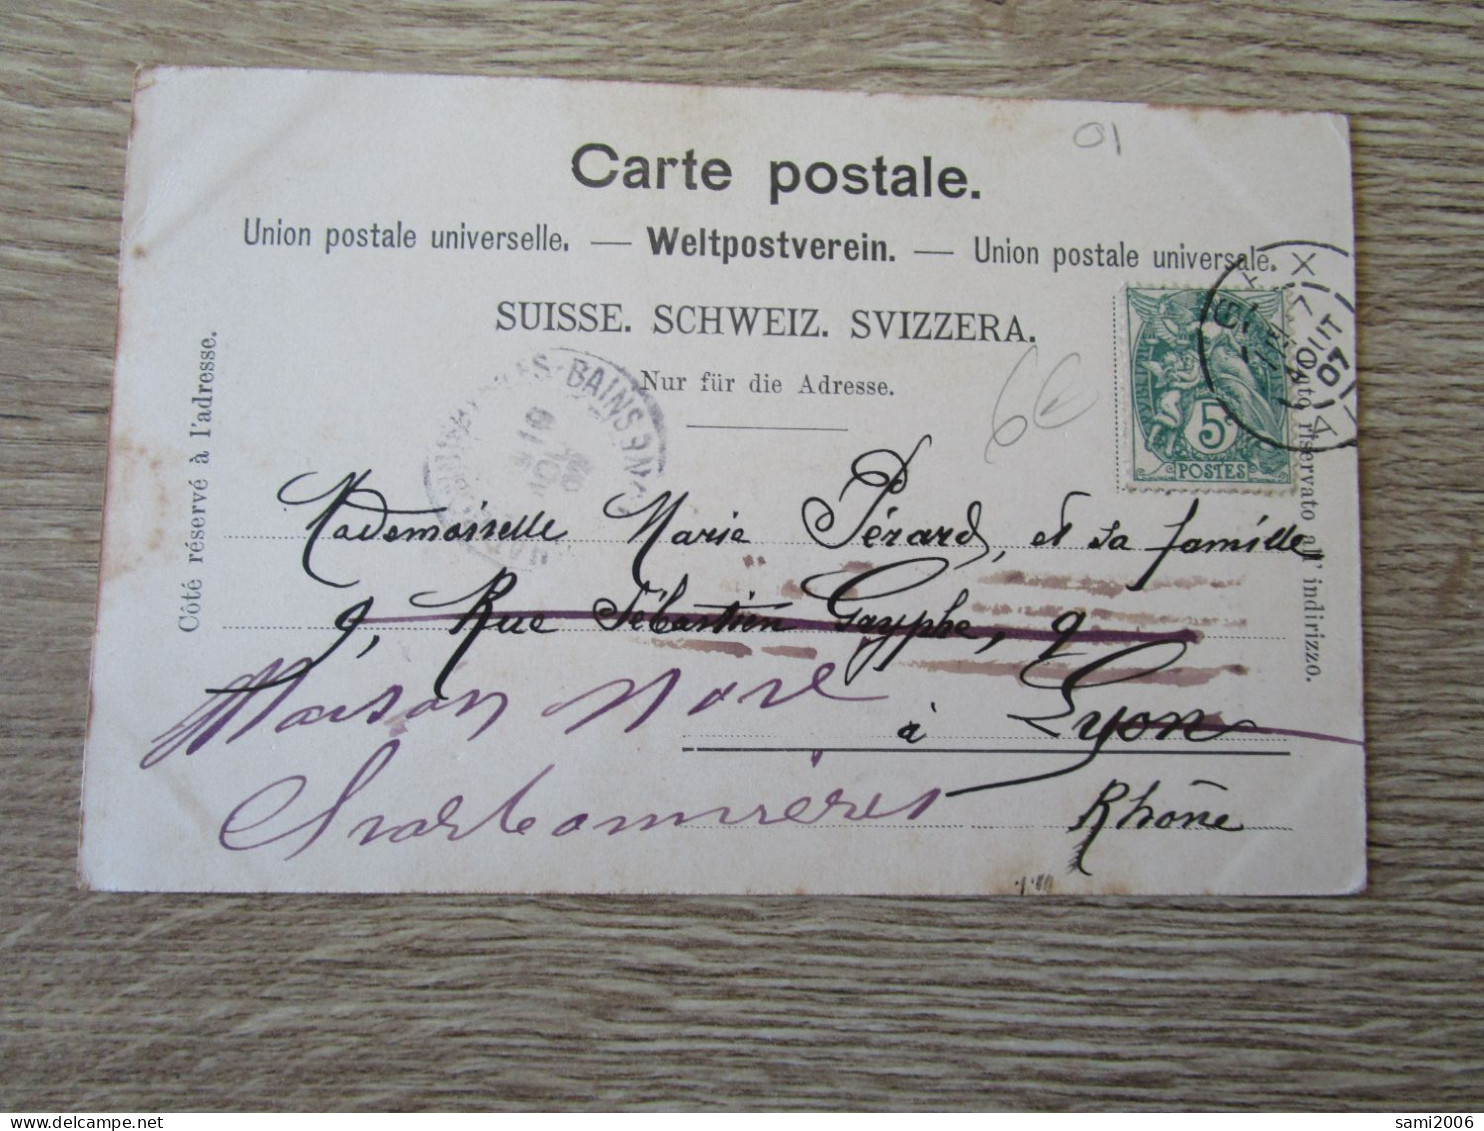 01
Carte postale.
Union postale universelle. — Weltpostverein. — Union postale universale.
SUISSE. SCHWEIZ. SVIZZERA.
Nur für die Adresse.
6€
Côté réservé à l'adresse.
Lato riservato all' indirizzo.
5
POSTES
AOUT
07
BAINS
Mademoiselle Marie Pérard, et sa famille
9, Rue Sébastien Gryphe, 9
à Lyon
Rhône
Maison Noré
Charbonnières
sami2006